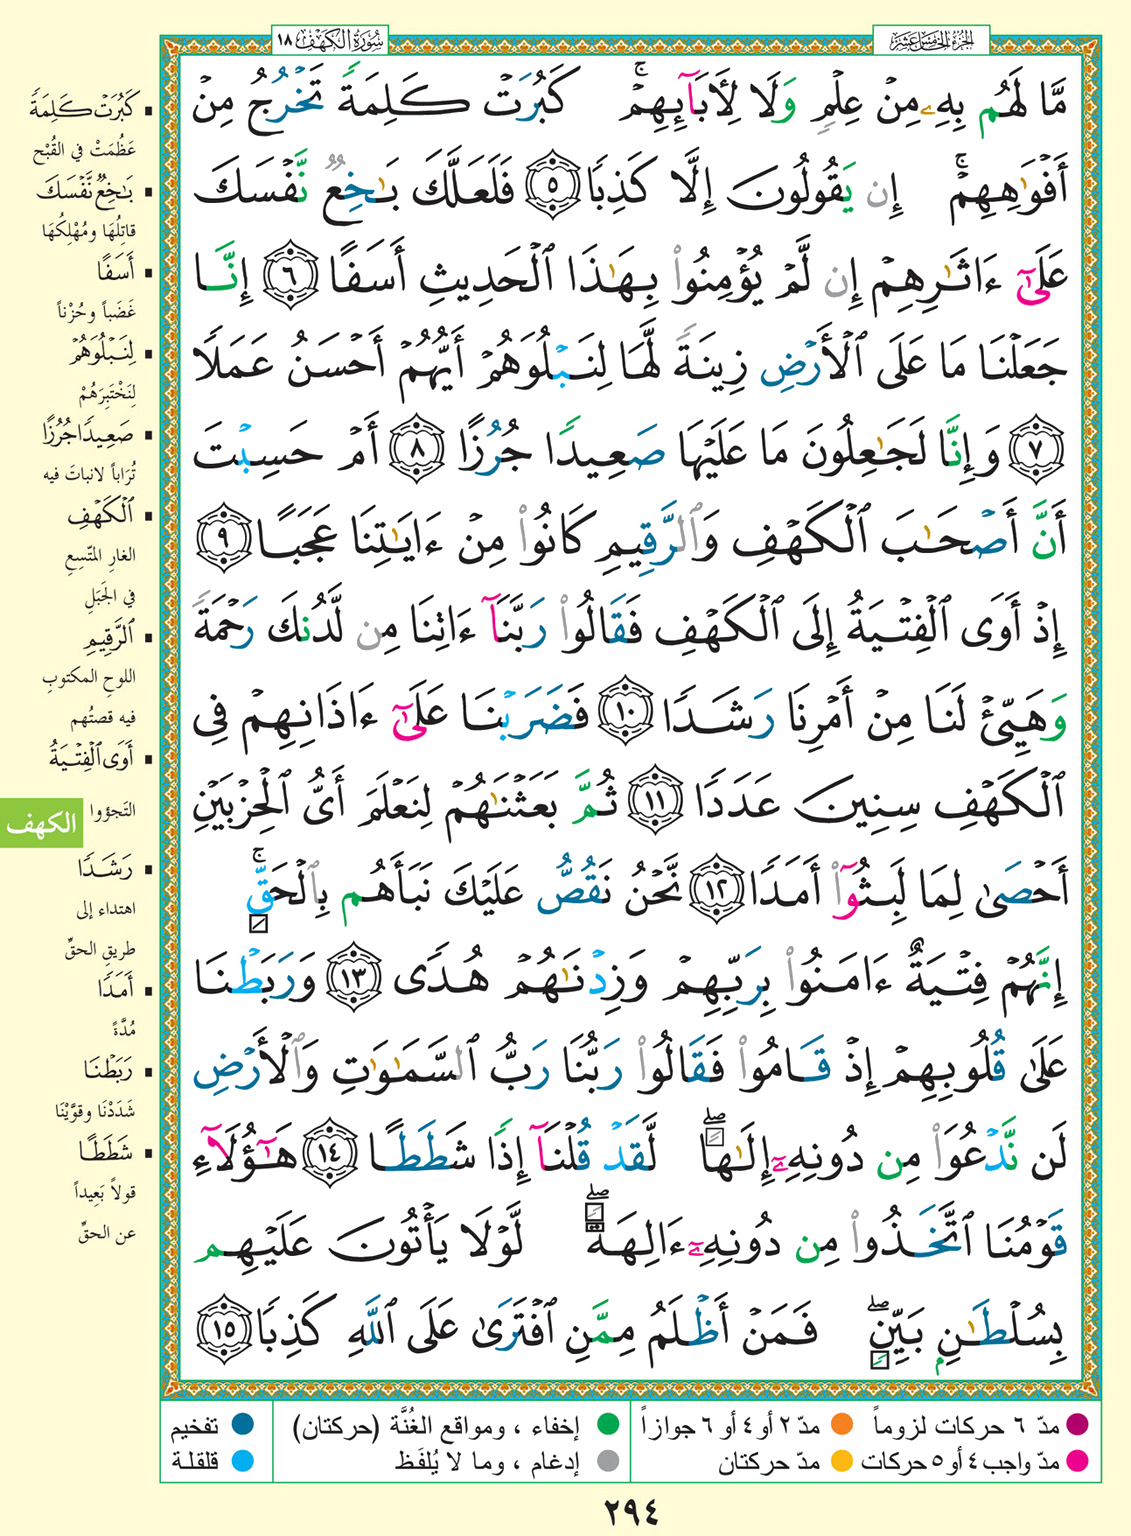 الجزء الخامس عشر
سورة الكهف ١٨
مَّا لَهُم بِهِۦ مِنْ عِلْمٍ وَلَا لِأَبَآئِهِمْ ۚ كَبُرَتْ كَلِمَةً تَخْرُجُ مِنْ
أَفْوَٰهِهِمْ ۚ إِن يَقُولُونَ إِلَّا كَذِبًا ٥ فَلَعَلَّكَ بَٰخِعٌ نَّفْسَكَ
عَلَىٰٓ ءَاثَٰرِهِمْ إِن لَّمْ يُؤْمِنُوا۟ بِهَٰذَا ٱلْحَدِيثِ أَسَفًا ٦ إِنَّا
جَعَلْنَا مَا عَلَى ٱلْأَرْضِ زِينَةً لَّهَا لِنَبْلُوَهُمْ أَيُّهُمْ أَحْسَنُ عَمَلًا
٧ وَإِنَّا لَجَٰعِلُونَ مَا عَلَيْهَا صَعِيدًا جُرُزًا ٨ أَمْ حَسِبْتَ
أَنَّ أَصْحَٰبَ ٱلْكَهْفِ وَٱلرَّقِيمِ كَانُوا۟ مِنْ ءَايَٰتِنَا عَجَبًا ٩
إِذْ أَوَى ٱلْفِتْيَةُ إِلَى ٱلْكَهْفِ فَقَالُوا۟ رَبَّنَآ ءَاتِنَا مِن لَّدُنكَ رَحْمَةً
وَهَيِّئْ لَنَا مِنْ أَمْرِنَا رَشَدًا ١٠ فَضَرَبْنَا عَلَىٰٓ ءَاذَانِهِمْ فِى
ٱلْكَهْفِ سِنِينَ عَدَدًا ١١ ثُمَّ بَعَثْنَٰهُمْ لِنَعْلَمَ أَىُّ ٱلْحِزْبَيْنِ
أَحْصَىٰ لِمَا لَبِثُوٓا۟ أَمَدًا ١٢ نَّحْنُ نَقُصُّ عَلَيْكَ نَبَأَهُم بِٱلْحَقِّ ۚ
إِنَّهُمْ فِتْيَةٌ ءَامَنُوا۟ بِرَبِّهِمْ وَزِدْنَٰهُمْ هُدًى ١٣ وَرَبَطْنَا
عَلَىٰ قُلُوبِهِمْ إِذْ قَامُوا۟ فَقَالُوا۟ رَبُّنَا رَبُّ ٱلسَّمَٰوَٰتِ وَٱلْأَرْضِ
لَن نَّدْعُوَا۟ مِن دُونِهِۦٓ إِلَٰهًا ۖ لَّقَدْ قُلْنَآ إِذًا شَطَطًا ١٤ هَٰٓؤُلَآءِ
قَوْمُنَا ٱتَّخَذُوا۟ مِن دُونِهِۦٓ ءَالِهَةً ۖ لَّوْلَا يَأْتُونَ عَلَيْهِم
بِسُلْطَٰنٍ بَيِّنٍ ۖ فَمَنْ أَظْلَمُ مِمَّنِ ٱفْتَرَىٰ عَلَى ٱللَّهِ كَذِبًا ١٥
كَبُرَتْ كَلِمَةً
عَظُمَتْ في القُبْح
بَٰخِعٌ نَّفْسَكَ
قاتِلُهَا ومُهْلِكُهَا
أَسَفًا
غَضَباً وحُزْناً
لِنَبْلُوَهُمْ
لِنَخْتَبِرَهُمْ
صَعِيدًا جُرُزًا
تُرَاباً لا نباتَ فيه
ٱلْكَهْفِ
الغارِ المتّسِعِ
في الجَبَلِ
ٱلرَّقِيمِ
اللوحِ المكتوبِ
فيه قصتُهم
أَوَى ٱلْفِتْيَةُ
التَجؤوا
رَشَدًا
اهتداء إلى
طريقِ الحقِّ
أَمَدًا
مُدَّةً
رَبَطْنَا
شَدَدْنَا وقوَّيْنَا
شَطَطًا
قولاً بَعِيداً
عن الحقِّ
الكهف
مدّ ٦ حركات لزوماً
مدّ ٢ أو ٤ أو ٦ جوازاً
إخفاء ، ومواقع الغُنَّة (حركتان)
تفخيم
مدّ واجب ٤ أو ٥ حركات
مدّ حركتان
إدغام ، وما لا يُلفَظ
قلقلة
٢٩٤